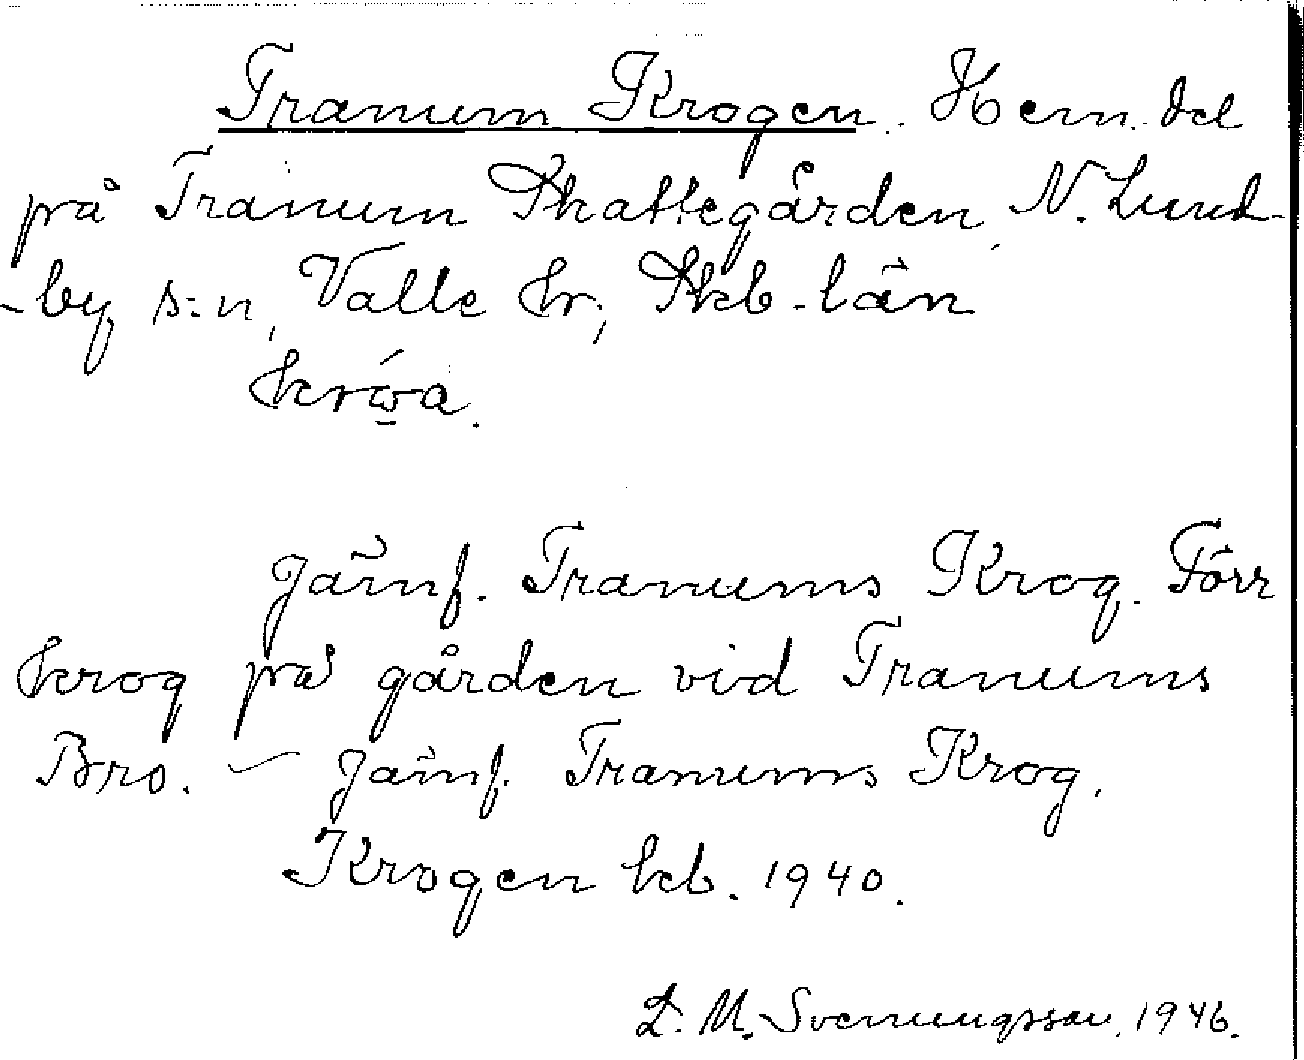 Tranum Krogen. Hem. del
på Tranum Skattegården, N. Lund-
-by s:n, Valle hr; Skb-län
Jämf. Tranums Krog. Förr
krog på gården vid Tranums
Bro. – Jämf. Tranums Krog.
Krogen kb. 1940.
L. M. Svenungsson, 1946.